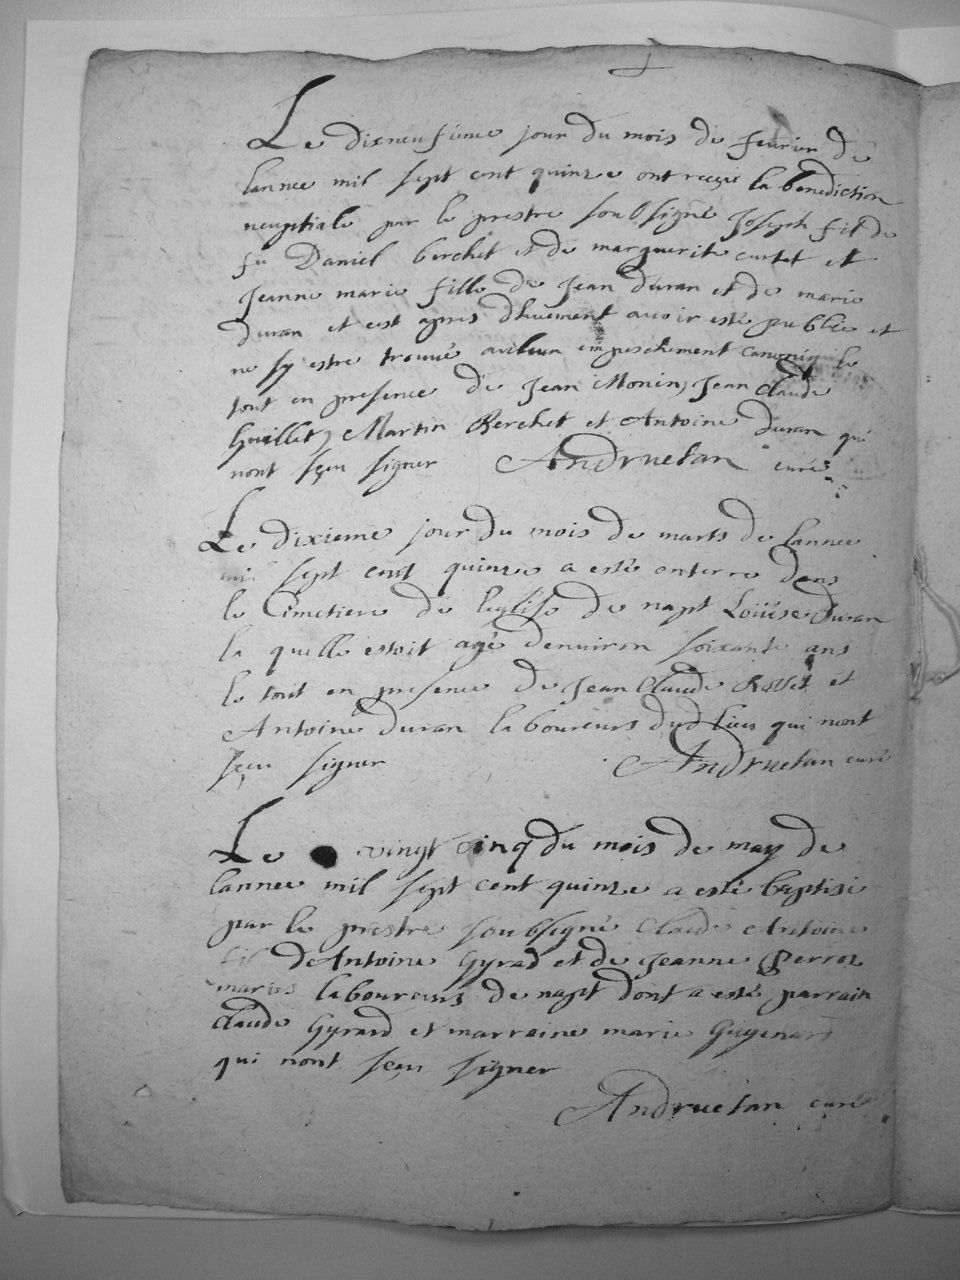 Le dixneufieme jour du mois de fevrier de
lannee mil sept cent quinze ont reçeu la benediction
neuptiale par le prestre soubsigné Joseph fil de
fu Daniel berchet et de marguerite curtet et
Jeanne marie fille de Jean duran et de marie
duran et cest apres dhuement avoir esté publié et
ne sy estre trouvé aucun empeschement canonique le
tout en presence de Jean Monin, Jean Claude
Guillet, Martin Berchet et Antoine duran qui
nont sçeu signer Andruetan curé
Le dixieme jour du mois de marts de lannee
mil sept cent quinze a esté enterre dans
le Cimetiere de leglise de napt Loüise duran
la quelle estoit agé denuiron soixante ans
le tout en presence de Jean Claude et
Antoine duran laboureurs dud lieu qui nont
sçeu signer Andruetan curé
Le vingt cinq du mois de may de
lannee mil sept cent quinze a esté baptisé
par le prestre soubsigné Claude Antoine
fil dAntoine Gyrad et de Jeanne Perroz
mariés laboureurs de napt dont a esté parrain
claude Gyrard et marraine marie
qui nont sçeu signer
Andruetan curé